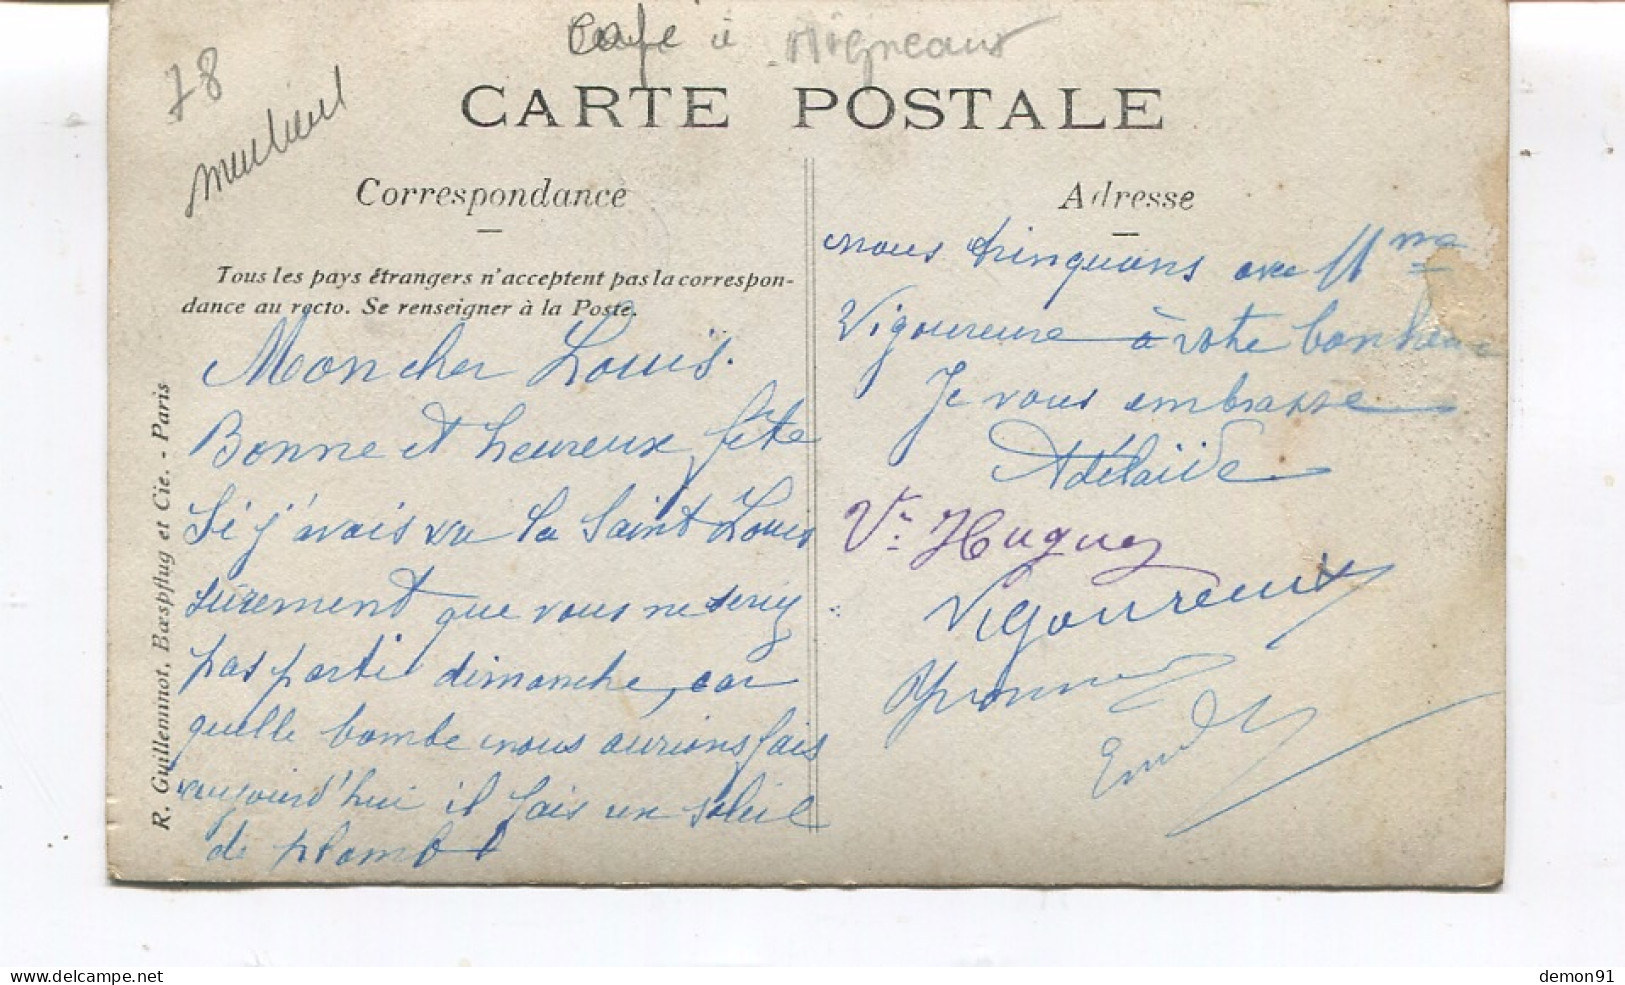 Café à Migneaux
78
CARTE POSTALE
Correspondance
Tous les pays étrangers n'acceptent pas la correspon-
dance au recto. Se renseigner à la Poste.
R. Guilleminot, Bœspflug et Cie. - Paris
Mon cher Louis.
Bonne et heureuse fête
Si j'avais vu la Saint Louis
surement que vous ne seriez
pas parti dimanche, car
quelle bombe nous aurions fais
aujourd'hui il fais un soleil
de plomb
Adresse
nous trinquons avec Mme
Vigoureuse à votre bonheur
Je vous embrasse
Adélaïde
Ve Hugues
Vigoureux
demon91